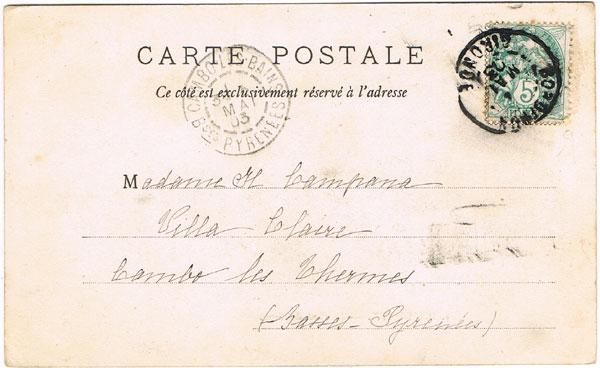 CARTE POSTALE
Ce côté est exclusivement réservé à l'adresse
CAMBO-LES-BAINS
MAI
03
Bses PYRENÉES
5
Madame H Campana
Villa Claire
Cambo les Thermes
(Basses-Pyrenées)